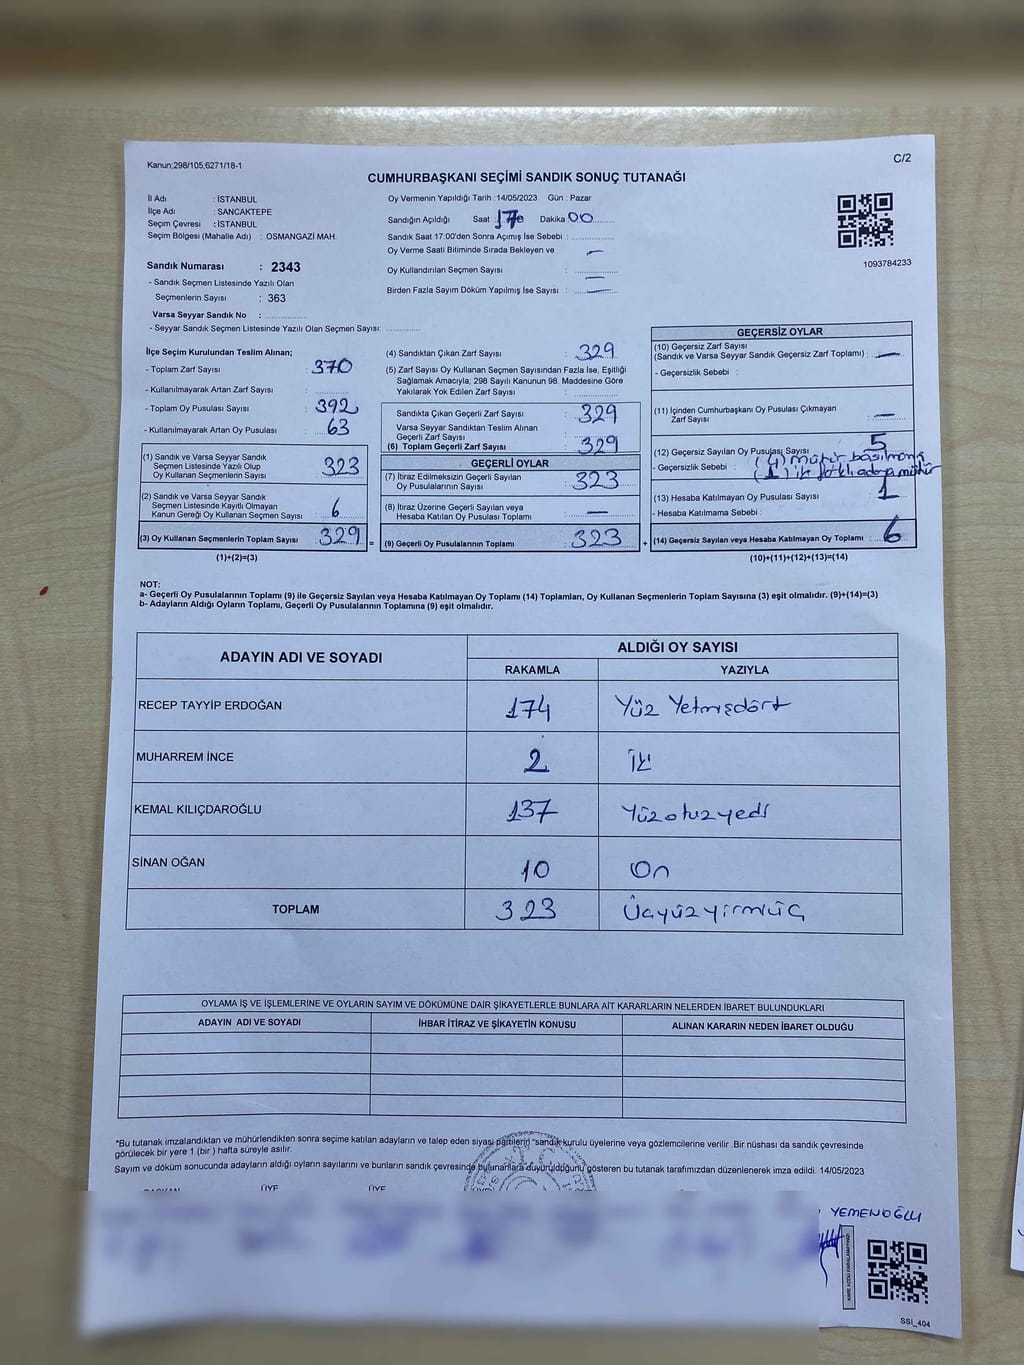 Kanun;298/105,6271/18-1
C/2
CUMHURBAŞKANI SEÇİMİ SANDIK SONUÇ TUTANAĞI
İl Adı : İSTANBUL
İlçe Adı : SANCAKTEPE
Seçim Çevresi : İSTANBUL
Seçim Bölgesi (Mahalle Adı) : OSMANGAZİ MAH.
Oy Vermenin Yapıldığı Tarih :14/05/2023 Gün : Pazar
Sandığın Açıldığı Saat : 17 Dakika 00
Sandık Saat 17.00'den Sonra Açımış İse Sebebi :
Oy Verme Saati Bitiminde Sırada Bekleyen ve —
Oy Kullandırılan Seçmen Sayısı : —
Birden Fazla Sayım Döküm Yapılmış İse Sayısı : —
1093784233
Sandık Numarası : 2343
- Sandık Seçmen Listesinde Yazılı Olan
Seçmenlerin Sayısı : 363
Varsa Seyyar Sandık No :
- Seyyar Sandık Seçmen Listesinde Yazılı Olan Seçmen Sayısı:
İlçe Seçim Kurulundan Teslim Alınan;
- Toplam Zarf Sayısı : 370
- Kullanılmayarak Artan Zarf Sayısı :
- Toplam Oy Pusulası Sayısı : 392
- Kullanılmayarak Artan Oy Pusulası : 63
(1) Sandık ve Varsa Seyyar Sandık
Seçmen Listesinde Yazılı Olup
Oy Kullanan Seçmenlerin Sayısı : 323
(2) Sandık ve Varsa Seyyar Sandık
Seçmen Listesinde Kayıtlı Olmayan
Kanun Gereği Oy Kullanan Seçmen Sayısı : 6
(3) Oy Kullanan Seçmenlerin Toplam Sayısı : 329 =
(1)+(2)=(3)
(4) Sandıktan Çıkan Zarf Sayısı : 329
(5) Zarf Sayısı Oy Kullanan Seçmen Sayısından Fazla İse, Eşitliği
Sağlamak Amacıyla; 298 Sayılı Kanunun 98. Maddesine Göre
Yakılarak Yok Edilen Zarf Sayısı :
Sandıkta Çıkan Geçerli Zarf Sayısı : 329
Varsa Seyyar Sandıktan Teslim Alınan
Geçerli Zarf Sayısı :
(6) Toplam Geçerli Zarf Sayısı : 329
GEÇERLİ OYLAR
(7) İtiraz Edilmeksizin Geçerli Sayılan
Oy Pusulalarının Sayısı : 323
(8) İtiraz Üzerine Geçerli Sayılan veya
Hesaba Katılan Oy Pusulası Toplamı : —
(9) Geçerli Oy Pusulalarının Toplamı : 323 +
GEÇERSİZ OYLAR
(10) Geçersiz Zarf Sayısı
(Sandık ve Varsa Seyyar Sandık Geçersiz Zarf Toplamı) : —
- Geçersizlik Sebebi :
(11) İçinden Cumhurbaşkanı Oy Pusulası Çıkmayan
Zarf Sayısı : —
(12) Geçersiz Sayılan Oy Pusulası Sayısı : 5
- Geçersizlik Sebebi : (4) mühür basılmamış
(1) iki farklı adaya mühür
(13) Hesaba Katılmayan Oy Pusulası Sayısı : 1
- Hesaba Katılmama Sebebi :
(14) Geçersiz Sayılan veya Hesaba Katılmayan Oy Toplamı : 6
(10)+(11)+(12)+(13)=(14)
NOT:
a- Geçerli Oy Pusulalarının Toplamı (9) ile Geçersiz Sayılan veya Hesaba Katılmayan Oy Toplamı (14) Toplamları, Oy Kullanan Seçmenlerin Toplam Sayısına (3) eşit olmalıdır. (9)+(14)=(3)
b- Adayların Aldığı Oyların Toplamı, Geçerli Oy Pusulalarının Toplamına (9) eşit olmalıdır.
ADAYIN ADI VE SOYADI ALDIĞI OY SAYISI
RAKAMLA YAZIYLA
RECEP TAYYİP ERDOĞAN 174 Yüz Yetmişdört
MUHARREM İNCE 2 İki
KEMAL KILIÇDAROĞLU 137 Yüzotuzyedi
SİNAN OĞAN 10 On
TOPLAM 323 Üçyüzyirmiüç
OYLAMA İŞ VE İŞLEMLERİNE VE OYLARIN SAYIM VE DÖKÜMÜNE DAİR ŞİKAYETLERLE BUNLARA AİT KARARLARIN NELERDEN İBARET BULUNDUKLARI
ADAYIN ADI VE SOYADI İHBAR İTİRAZ VE ŞİKAYETİN KONUSU ALINAN KARARIN NEDEN İBARET OLDUĞU
*Bu tutanak imzalandıktan ve mühürlendikten sonra seçime katılan adayların ve talep eden siyasi partilerin sandık kurulu üyelerine veya gözlemcilerine verilir .Bir nüshası da sandık çevresinde
görülecek bir yere 1 (bir ) hafta süreyle asılır.
Sayım ve döküm sonucunda adayların aldığı oyların sayılarını ve bunların sandık çevresinde bulunanlara duyurulduğunu gösteren bu tutanak tarafımızdan düzenlenerek imza edildi. 14/05/2023
BAŞKAN ÜYE ÜYE
YEMENOĞLU
SSI_404